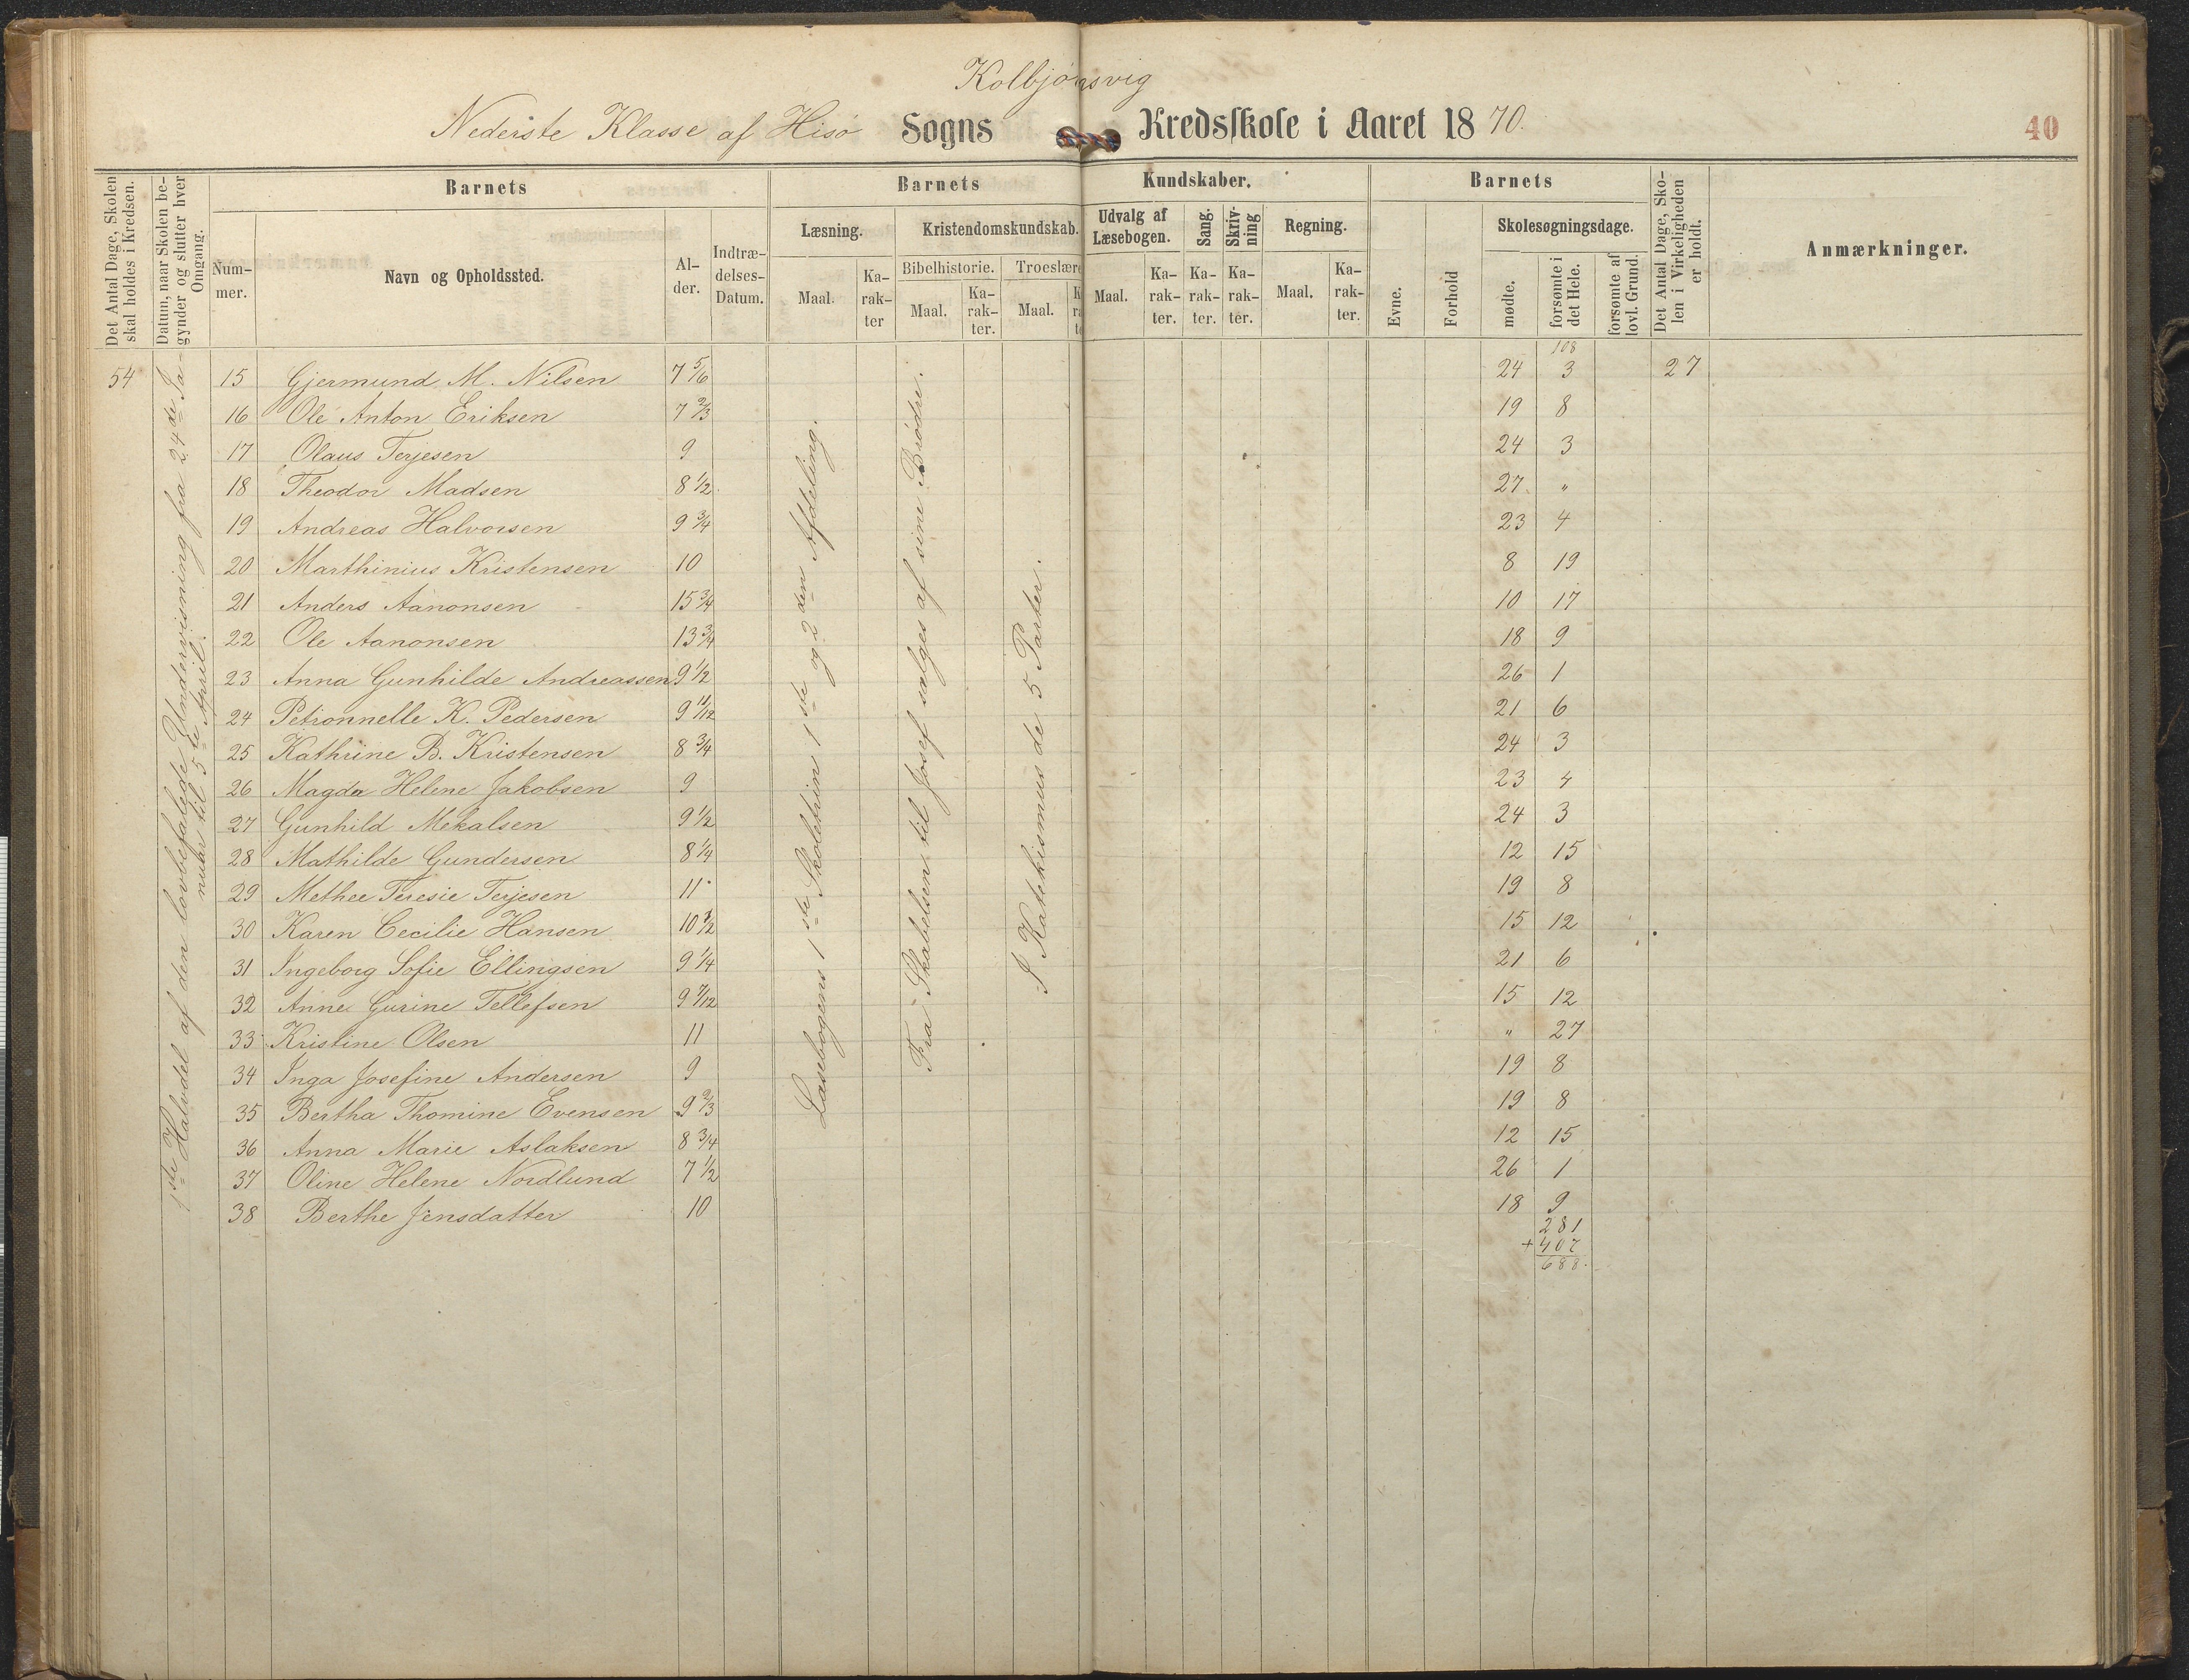 Kolbjørnsvig
Nederste Klasse af Hisø Sogns Kredsskole i Aaret 1870. 40
Det Antal Dage, Skolen skal holdes i Kredsen.
Datum, naar Skolen begynder og slutter hver Omgang.
Barnets
Barnets Kundskaber.
Barnets
Det Antal Dage, Skolen i Virkeligheden er holdt.
Anmærkninger.
Nummer. Navn og Opholdssted. Alder. Indtrædelses-Datum.
Læsning. Kristendomskundskab. Udvalg af Læsebogen. Sang. Skrivning Regning.
Bibelhistorie. Troeslære
Maal. Karakter Maal. Karakter. Maal. Maal. Karakter. Karakter. Karakter. Maal. Karakter.
Evne. Forhold Skolesøgningsdage.
mødte. forsømte i det Hele. forsømte af lovl. Grund.
108
54 15 Gjermund M. Nilsen 7 5/6 24 3 27
16 Ole Anton Eriksen 7 2/3 19 8
17 Olaus Terjesen 9 24 3
18 Theodor Madsen 8 1/2 27 "
19 Andreas Halvorsen 9 3/4 23 4
20 Marthinius Kristensen 10 8 19
21 Anders Aanonsen 15 3/4 10 17
22 Ole Aanonsen 13 3/4 18 9
23 Anna Gunhilde Andreassen 9 1/2 26 1
24 Petronnelle K. Pedersen 9 11/12 21 6
25 Kathrine B. Kristensen 8 3/4 24 3
26 Magda Helene Jakobsen 9 23 4
27 Gunhild Mekalsen 9 1/2 24 3
28 Mathilde Gundersen 8 1/4 12 15
29 Methee Teresie Terjesen 11 19 8
30 Karen Cecilie Hansen 10 1/2 15 12
31 Ingeborg Sofie Ellingsen 9 1/4 21 6
32 Anne Gurine Tellefsen 9 7/12 15 12
33 Kristine Olsen 11 " 27
34 Inga Josefine Andersen 9 19 8
35 Bertha Thomine Evensen 9 2/3 19 8
36 Anna Marie Aslaksen 8 3/4 12 15
37 Oline Helene Nordlund 7 1/2 26 1
38 Berthe Jensdatter 10 18 9
281
+407
688.
1ste Halvdel af den lovbefalede Undervisning fra 24de Ja-
nuar til 5te April.
Læsebogens 1ste Skoletrin 1ste og 2den Afdeling.
Fra Skabelsen til Josef sælges af sine Brødre.
I Katekismus de 5 Parter.